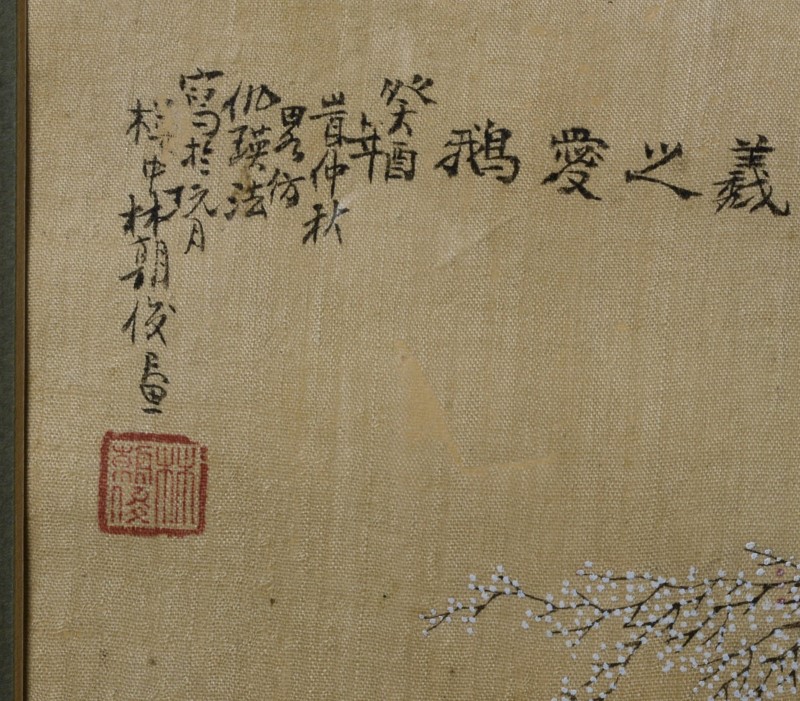 羲之愛鵝
癸酉
年
峕仲秋
畧仿
仇瑛法
寫於玩月
樓中林朝俊畫
林朝俊